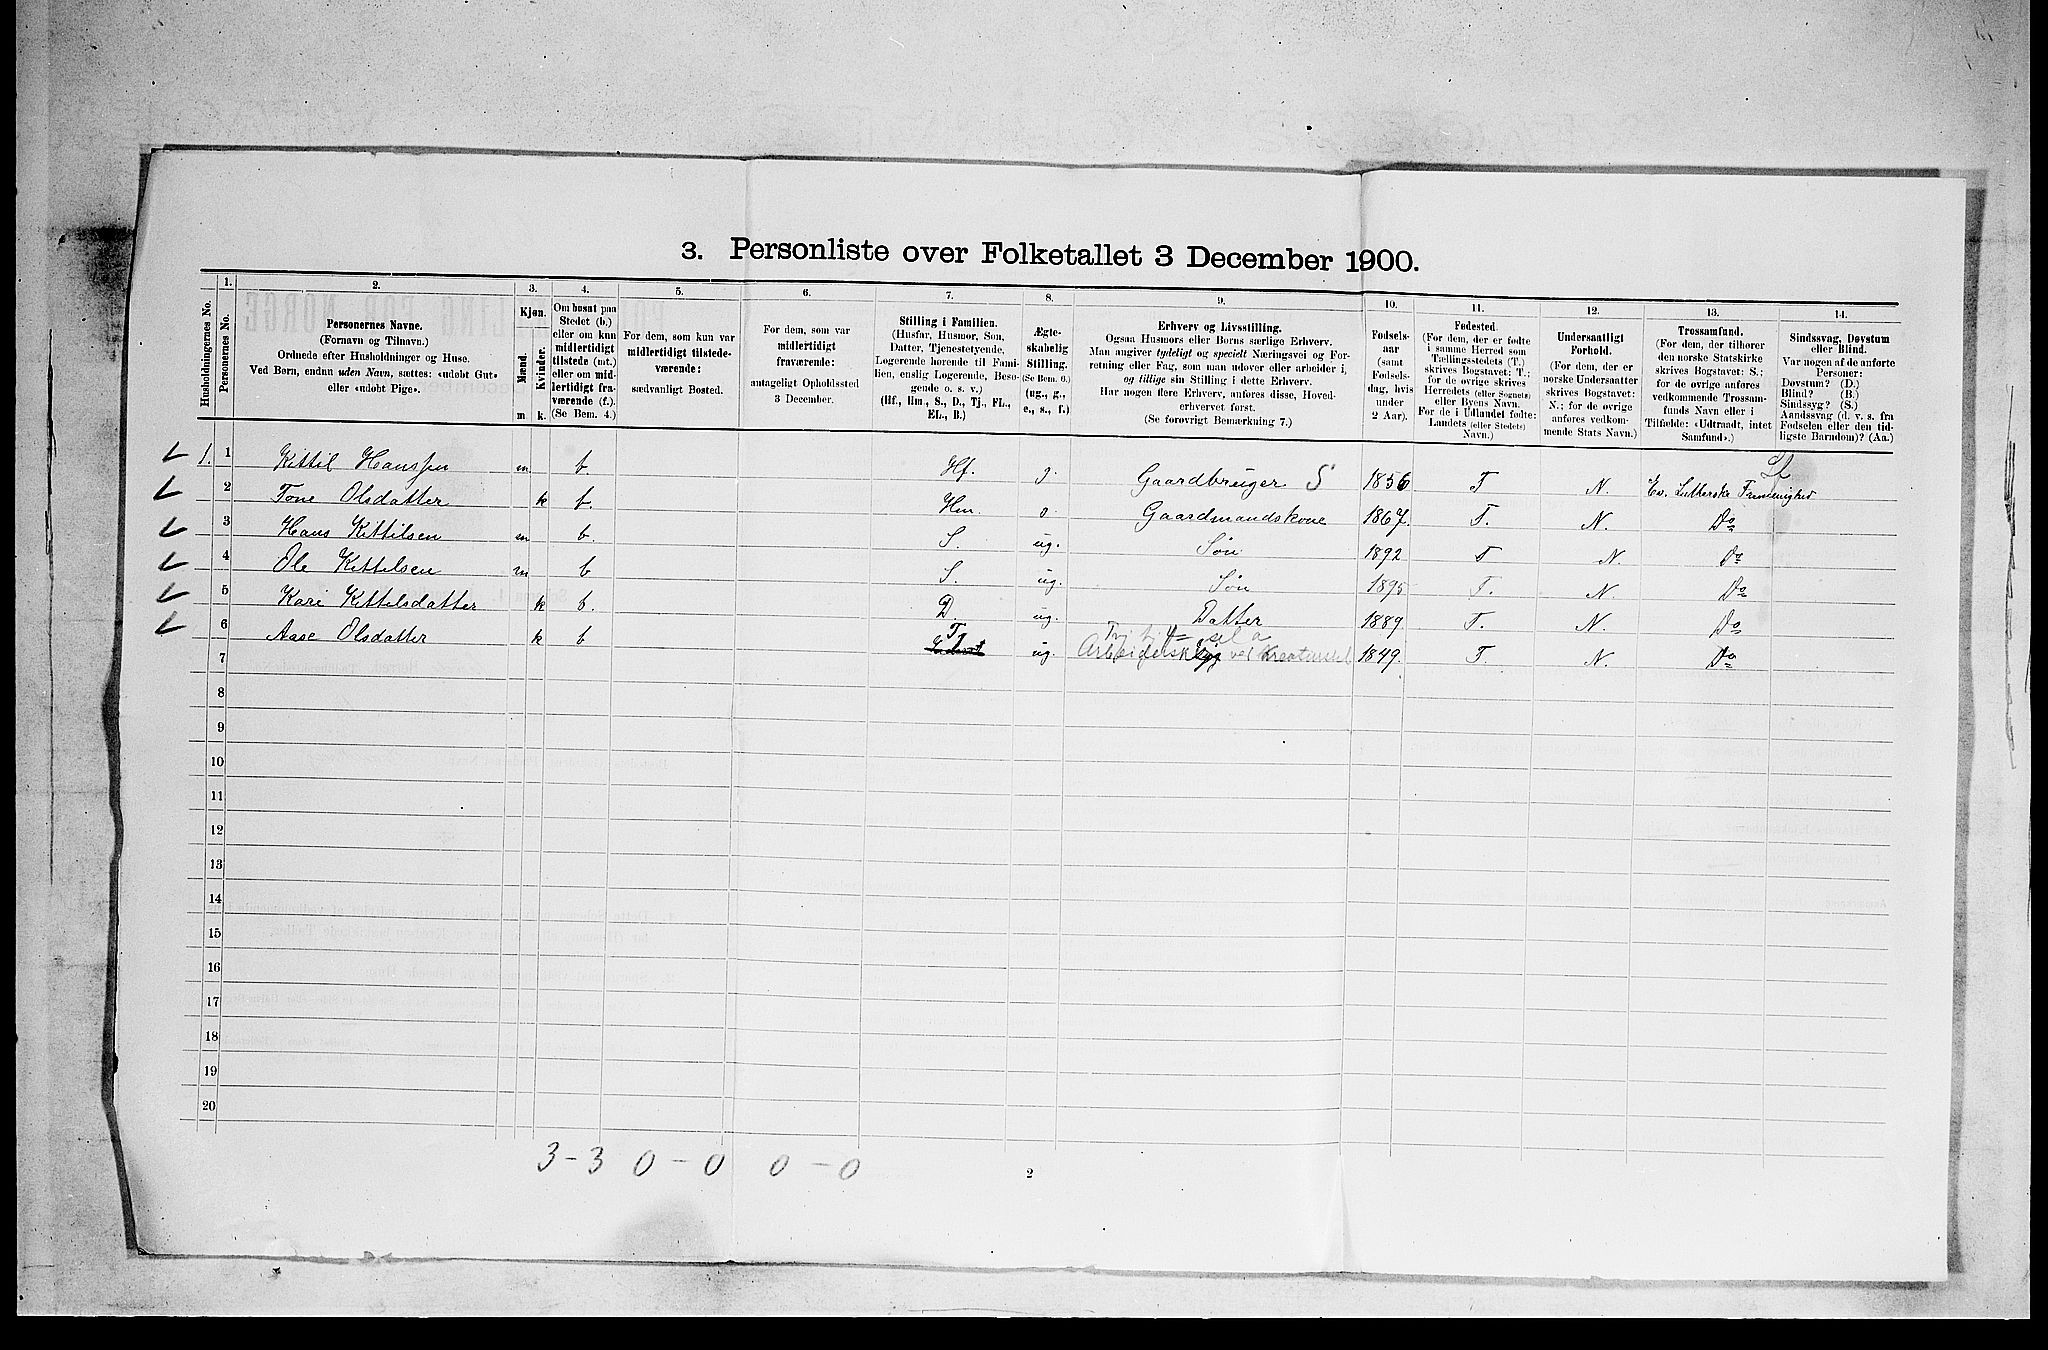 3. Personliste over Folketallet 3 December 1900.
Husholdningernes No.
1.
Personernes No.
2.
Personernes Navne.
(Fornavn og Tilnavn.)
Ordnede efter Husholdninger og Huse.
Ved Børn, endnu uden Navn, sættes: «udøbt Gut»
eller «udøbt Pige».
3.
Kjøn.
Mænd.
Kvinder.
m. k.
4.
Om bosat paa
Stedet (b.)
eller om kun
midlertidigt
tilstede (mt.)
eller om mid-
lertidigt fra-
værende (f.).
(Se Bem. 4.)
5.
For dem, som kun var
midlertidigt tilstede-
værende:
sædvanligt Bosted.
6.
For dem, som var
midlertidigt
fraværende:
antageligt Opholdssted
3 December.
7.
Stilling i Familien.
(Husfar, Husmor, Søn,
Datter, Tjenestetyende,
Logerende hørende til Fami-
lien, enslig Logerende, Besø-
gende o. s. v.)
(Hf., Hm., S., D., Tj., FL.,
EL., B.)
8.
Ægte-
skabelig
Stilling.
(Se Bem. 6.)
(ug., g.,
e., s., f.)
9.
Erhverv og Livsstilling.
Ogsaa Husmors eller Børns særlige Erhverv.
Man angiver tydeligt og specielt Næringsvei og For-
retning eller Fag, som man udøver eller arbeider i,
og tillige sin Stilling i dette Erhverv.
Har nogen flere Erhverv, anføres disse, Hoved-
erhvervet først.
(Se forøvrigt Bemærkning 7.)
10.
Fødsels-
aar
(samt
Fødsels-
dag, hvis
under
2 Aar).
11.
Fødested.
(For dem, der er fødte
i samme Herred som
Tællingsstedets (T.)
skrives Bogstavet: T.;
for de øvrige skrives
Herredets (eller Sognets)
eller Byens Navn.
For de i Udlandet fødte:
Landets (eller Stedets)
Navn.)
12.
Undersaatligt
Forhold.
(For dem, der er
norske Undersaatter
skrives Bogstavet:
N.; for de øvrige
anføres vedkom-
mende Stats Navn.)
13.
Trossamfund.
(For dem, der tilhører
den norske Statskirke
skrives Bogstavet: S.;
for de øvrige anføres
vedkommende Trossam-
funds Navn eller i
Tilfælde: «Udtraadt, intet
Samfund».)
14.
Sindssvag, Døvstum
eller Blind.
Var nogen af de anførte
Personer:
Døvstum? (D.)
Blind? (B.)
Sindssyg? (S.)
Aandssvag (d. v. s. fra
Fødselen eller den tid-
ligste Barndom)? (Aa.)
1. 1 Kittil Hanssen m b. Hf. g. Gaardbruger S 1856 T N. Ev. Lutherske Frimenighed
2 Tone Olsdatter k b. Hm. g. Gaardmandskone 1867. T. N. Do
3 Hans Kittilsen m b. S. ug. Søn 1892 T N. Do
4 Ole Kittilsen m b S. ug. Søn 1895 T. N. Do
5 Kari Kittelsdatter k b. D. ug. Datter 1889. T. N. Do
6 Aase Olsdatter k b ug. 1849. T. N. Do
7
8
9
10
11
12
13
14
15
16
17
18
19
20
3-3 0-0 0-0
2